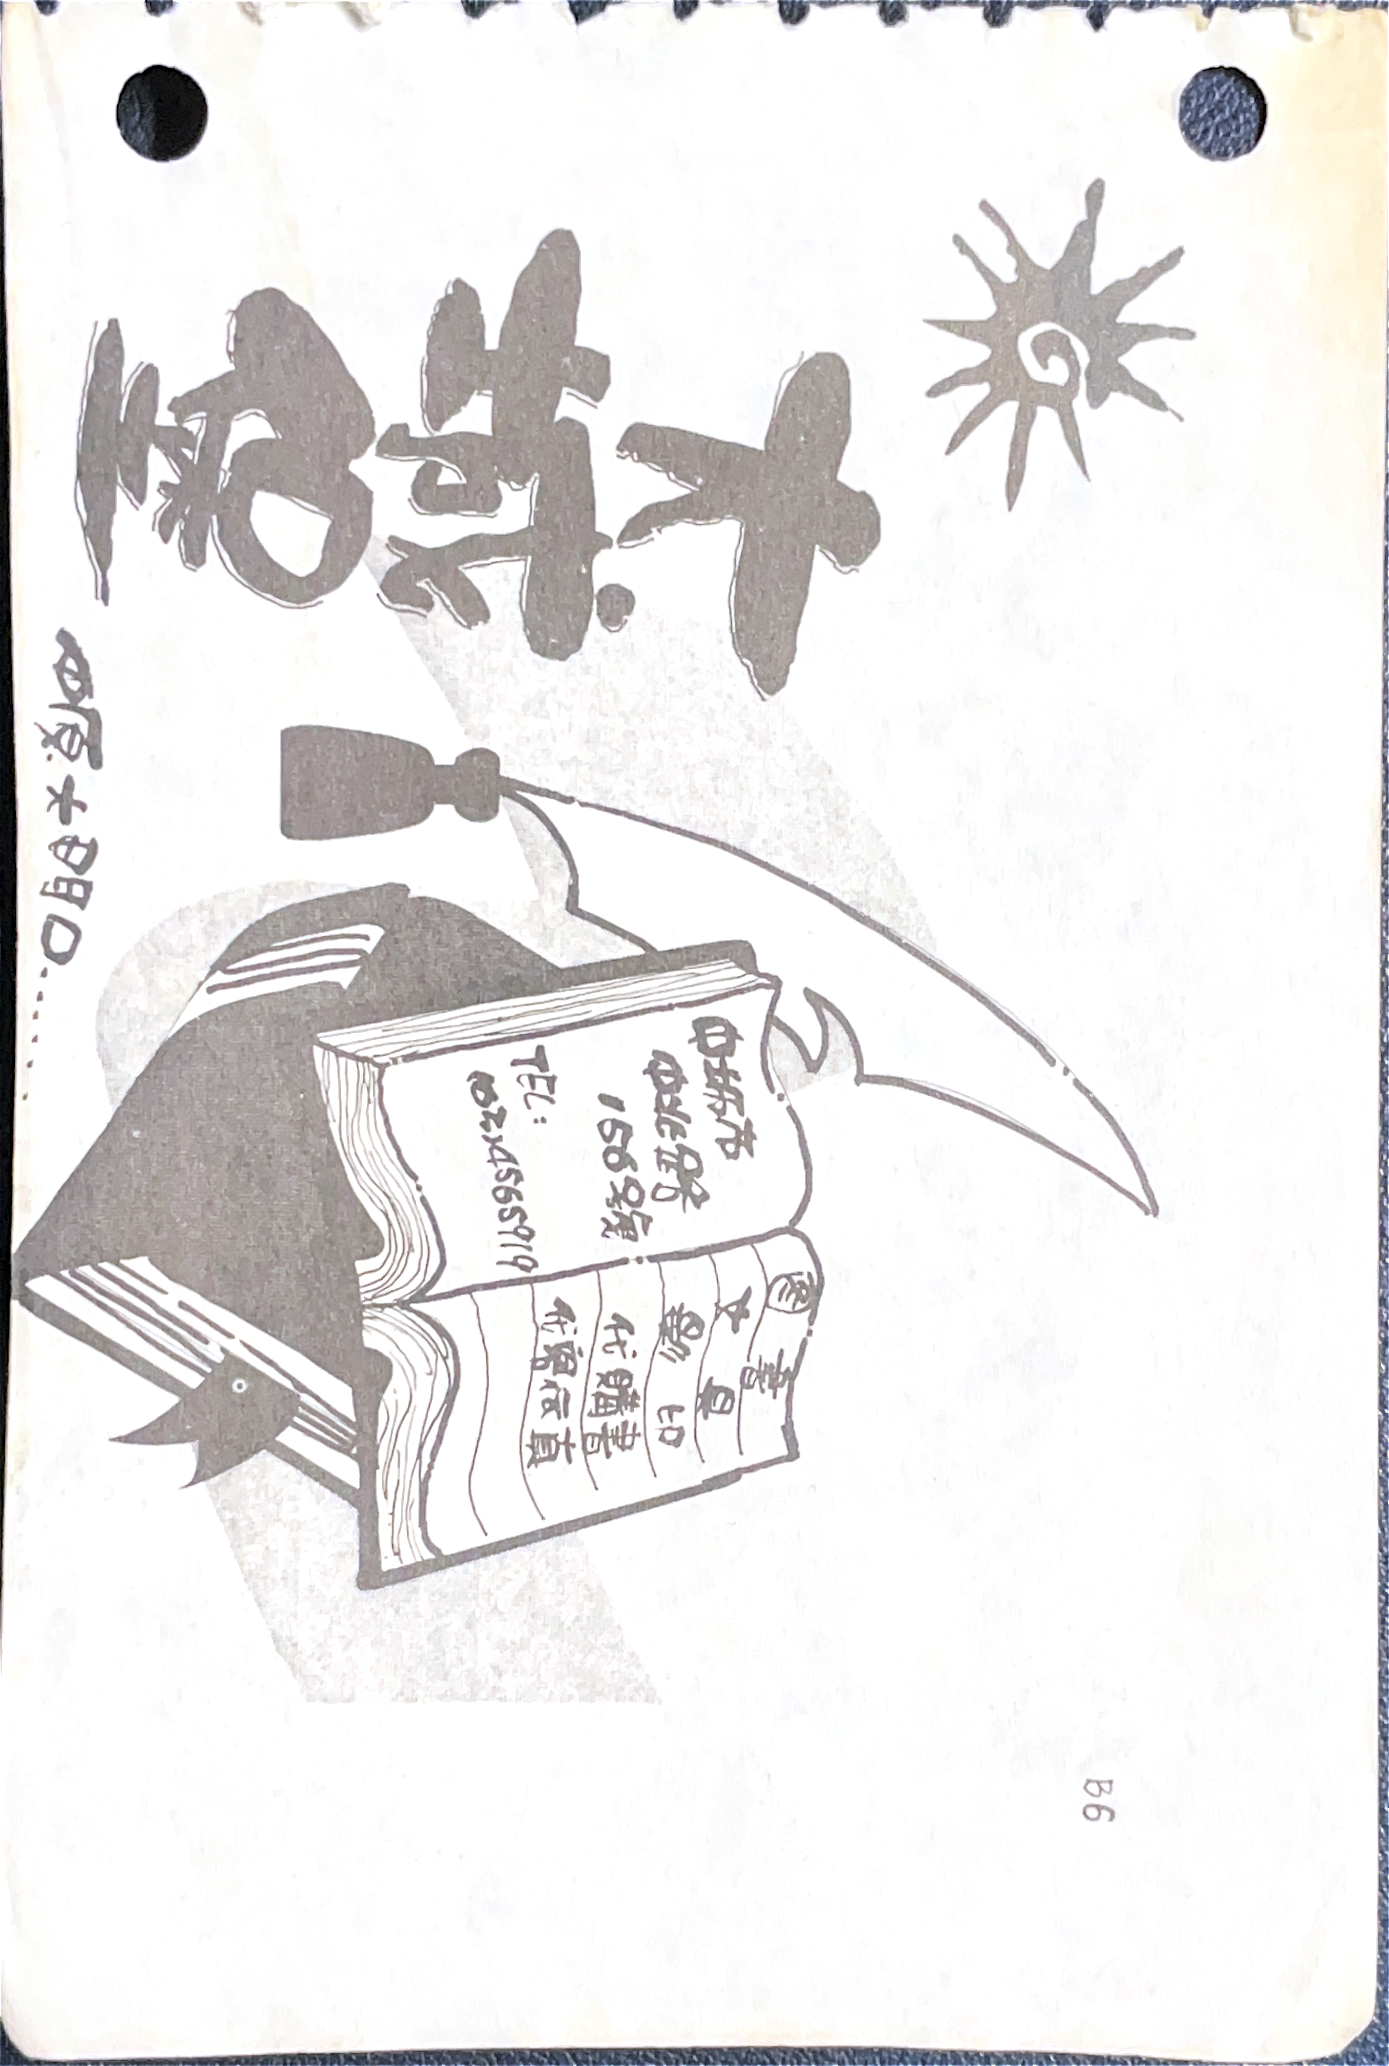 B6
大
城
堡
中坜市
中北路
156號
TEL:
(03)4565919
图書
文具
影印
代購書
代客伝真
中原大門口......